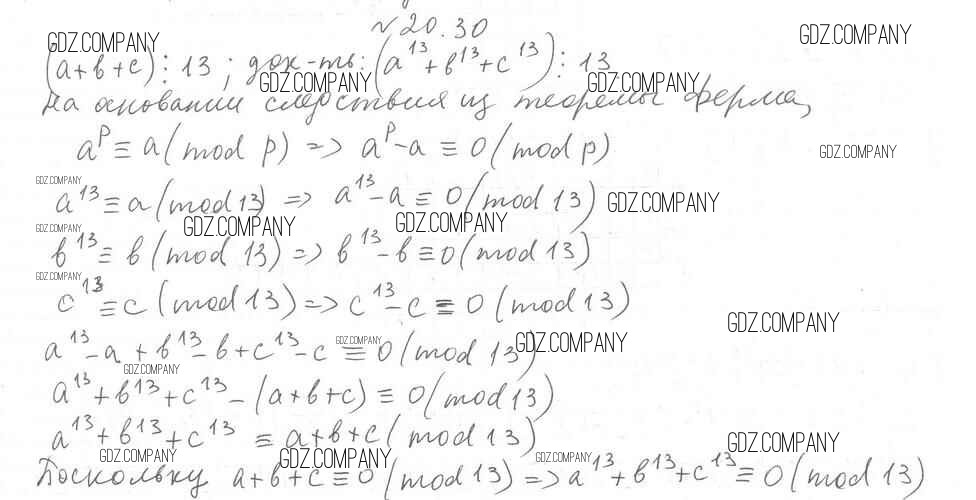 № 20.30
GDZ.COMPANY
GDZ.COMPANY
(a+b+c)⋮13; док-ть: (a¹³+b¹³+c¹³)⋮13
GDZ.COMPANY
GDZ.COMPANY
На основании следствия из теоремы Ферма,
aᵖ≡a(mod p) => aᵖ-a≡0(mod p)
GDZ.COMPANY
GDZ.COMPANY
a¹³≡a(mod 13) => a¹³-a≡0(mod 13)
GDZ.COMPANY
GDZ.COMPANY
GDZ.COMPANY
GDZ.COMPANY
b¹³≡b(mod 13) => b¹³-b≡0(mod 13)
GDZ.COMPANY
c¹³≡c(mod 13) => c¹³-c≡0(mod 13)
GDZ.COMPANY
a¹³-a+b¹³-b+c¹³-c≡0(mod 13)
GDZ.COMPANY
GDZ.COMPANY
GDZ.COMPANY
a¹³+b¹³+c¹³-(a+b+c)≡0(mod 13)
a¹³+b¹³+c¹³≡a+b+c(mod 13)
GDZ.COMPANY
GDZ.COMPANY
GDZ.COMPANY
GDZ.COMPANY
Поскольку a+b+c≡0(mod 13) => a¹³+b¹³+c¹³≡0(mod 13)